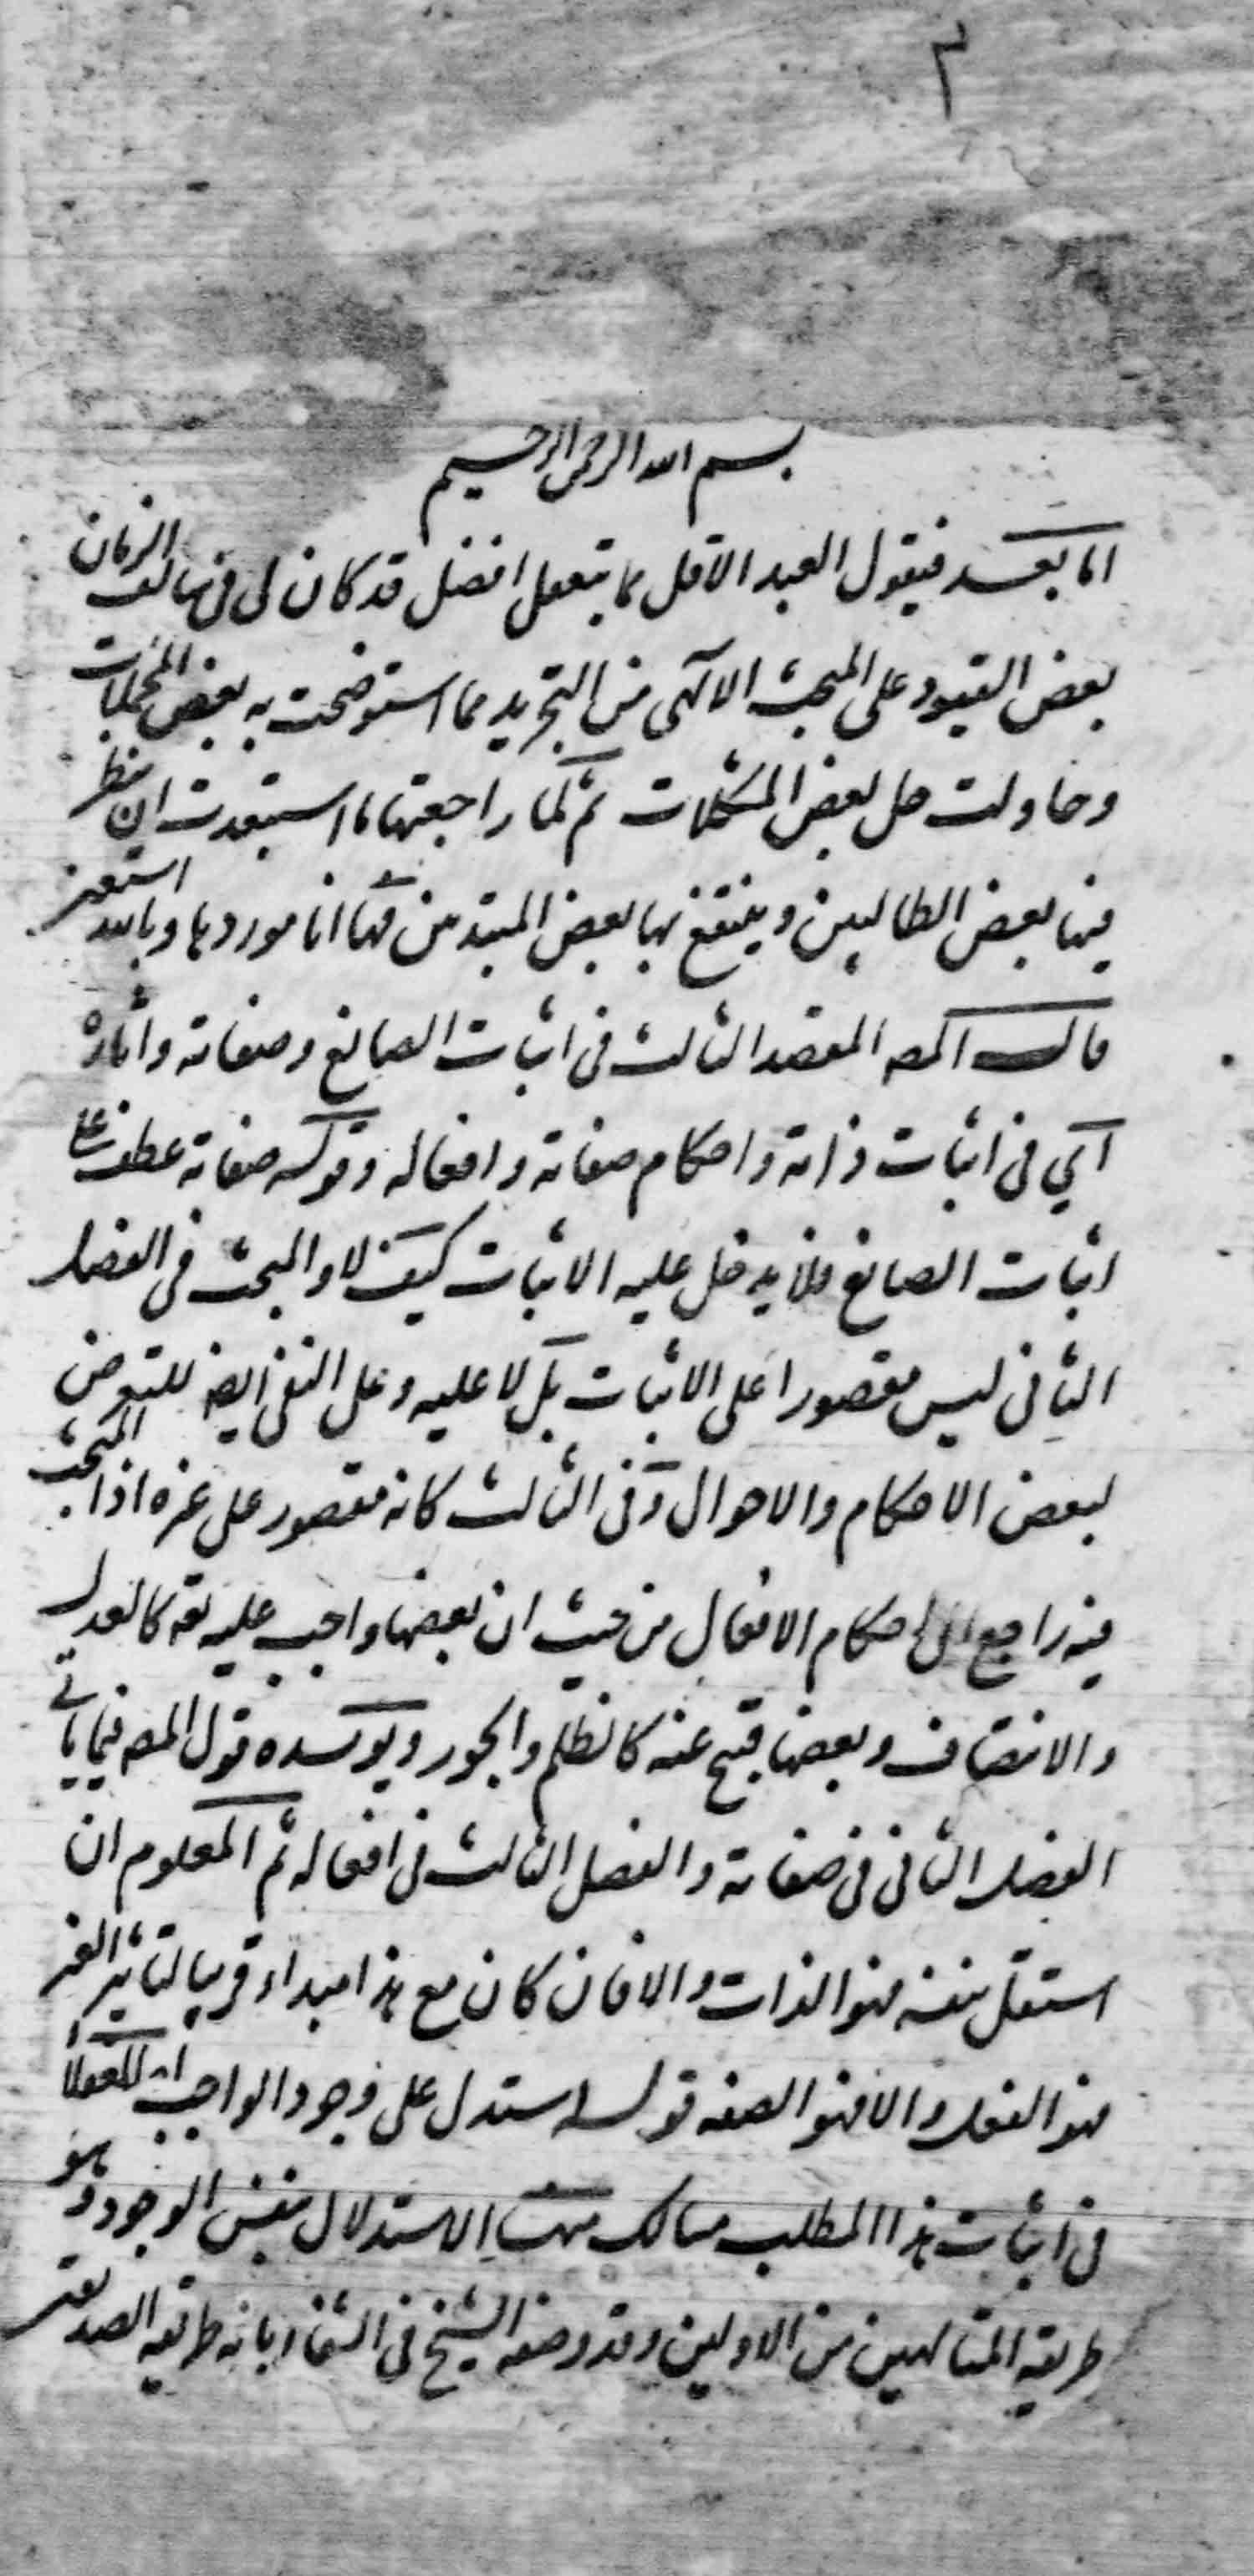 ٢
بسم الله الرحمن الرحيم
اما بعد فيقول العبد الاقل مما يتعقل افضل قد كان لى فى سالف الزمان
بعض القيود على المبحث الالهى من التجريد مما استوضحت به بعض المجملات
وحاولت حل بعض المشكلات ثم لما راجعتها ما استبعدت ان ينظر
فيها بعض الطالبين وينتفع بها بعض المبتدئين فها انا موردها وبالله استعين
قال المصه المقصد الثالث فى اثبات الصانع وصفاته واثاره
اى فى اثبات ذاته واحكام صفاته وافعاله وقوله صفاته عطف على
اثبات الصانع فلا يدخل عليه الاثبات كيف لا والبحث فى الفصل
الثانى ليس مقصورا على الاثبات بل لا عليه وعلى النفى ايضا للتعرض
لبعض الاحكام والاحوال وفى الثالث كانه مقصور على غيره اذ البحث
فيه راجع الى احكام الافعال من حيث ان بعضها واجب عليه تع كالعدل
والانتصاف وبعضها قبيح عنه كالظلم والجور ويؤيده قول المصه فيما ياتى
الفصل الثانى فى صفاته والفصل الثالث فى افعاله ثم المعلوم ان
استقل بنفسه فهو الذات والا فان كان مع هذا مبداء قريبا لتاثير الغير
فهو الفعل والا فهو الصفه قوله استدل على وجود الواجب اه للعقلاء
فى اثبات هذا المطلب مسالك منها الاستدلال بنفس الوجود وهو
طريقه المتالهين من الاولين وقد وصفه الشيخ فى الشفا بانه طريقه الصديقين